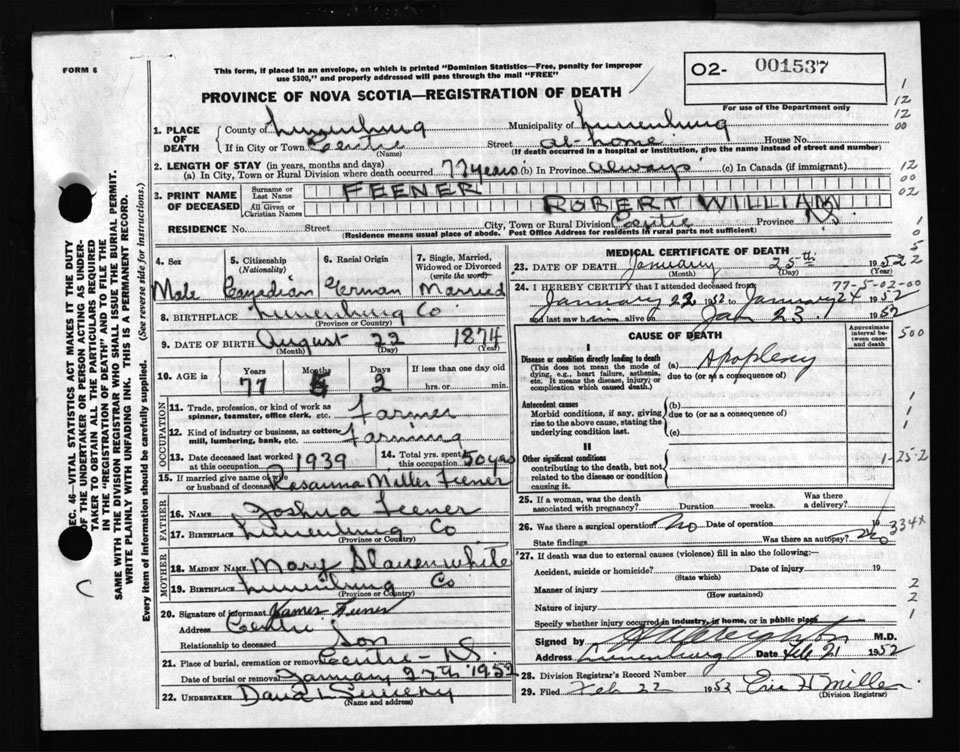 FORM 6
This form, if placed in an envelope, on which is printed "Dominion Statistics—Free, penalty for improper
use $300," and properly addressed will pass through the mail "FREE"
02- 001537
PROVINCE OF NOVA SCOTIA—REGISTRATION OF DEATH
For use of the Department only
1. PLACE OF DEATH
County of Lunenburg Municipality of Lunenburg
If in City or Town Centre (Name) Street at home House No.
(If death occurred in a hospital or institution, give the name instead of street and number)
2. LENGTH OF STAY (in years, months and days)
(a) In City, Town or Rural Division where death occurred 77 years (b) In Province always (c) In Canada (if immigrant)
3. PRINT NAME OF DECEASED
Surname or Last Name FEENER
All Given or Christian Names ROBERT WILLIAM
RESIDENCE No. Street City, Town or Rural Division Centre Province N.S.
(Residence means usual place of abode. Post Office Address for residents in rural parts not sufficient)
4. Sex
Male
5. Citizenship (Nationality)
Canadian
6. Racial Origin
German
7. Single, Married, Widowed or Divorced (write the word)
Married
8. BIRTHPLACE Lunenburg Co
(Province or Country)
9. DATE OF BIRTH August 22 1874
(Month) (Day) (Year)
10. AGE in Years Months Days If less than one day old
77 5 2 hrs. or min.
OCCUPATION
11. Trade, profession, or kind of work as
spinner, teamster, office clerk, etc. Farmer
12. Kind of industry or business, as cotton
mill, lumbering, bank, etc. Farming
13. Date deceased last worked
at this occupation 1939
14. Total yrs. spent
this occupation 50 yrs
15. If married give name of wife
or husband of deceased Rosanna Miller Feener
FATHER
16. NAME Joshua Feener
17. BIRTHPLACE Lunenburg Co
(Province or Country)
MOTHER
18. MAIDEN NAME Mary Slauenwhite
19. BIRTHPLACE Lunenburg Co
(Province or Country)
20. Signature of informant James Feener
Address Centre
Relationship to deceased Son
21. Place of burial, cremation or removal Centre - N.S.
Date of burial or removal January 27th 1952
22. UNDERTAKER
(Name and address)
MEDICAL CERTIFICATE OF DEATH
23. DATE OF DEATH January 25th 1952
(Month) (Day) (Year)
24. I HEREBY CERTIFY that I attended deceased from 77-5-02-00
January 22 1952 to January 24 1952
and last saw him alive on Jan 23 1952
CAUSE OF DEATH
Approximate interval between onset and death
I
Disease or condition directly leading to death
(This does not mean the mode of
dying, e.g., heart failure, asthenia,
etc. It means the disease, injury, or
complication which caused death.)
(a) Apoplexy
due to (or as a consequence of)
Antecedent causes
Morbid conditions, if any, giving
rise to the above cause, stating the
underlying condition last.
(b)
due to (or as a consequence of)
(c)
II
Other significant conditions
contributing to the death, but not
related to the disease or condition
causing it.
25. If a woman, was the death
associated with pregnancy? Duration weeks. Was there a delivery?
26. Was there a surgical operation? No Date of operation 19
State findings Was there an autopsy? No
27. If death was due to external causes (violence) fill in also the following:—
Accident, suicide or homicide? Date of injury 19
(State which)
Manner of injury
(How sustained)
Nature of injury
Specify whether injury occurred in industry, in home, or in public place
Signed by M.D.
Address Lunenburg Date Feb 21 1952
28. Division Registrar's Record Number
29. Filed Feb 22 1952 Miller
(Division Registrar)
1
12
12
00
12
00
02
1
0
5
2 2
500
1
1
1-25-2
334X
2
2
1
SEC. 46—VITAL STATISTICS ACT MAKES IT THE DUTY
OF THE UNDERTAKER OR PERSON ACTING AS UNDER-
TAKER TO OBTAIN ALL THE PARTICULARS REQUIRED
IN THE "REGISTRATION OF DEATH" AND TO FILE THE
SAME WITH THE DIVISION REGISTRAR WHO SHALL ISSUE THE BURIAL PERMIT.
WRITE PLAINLY WITH UNFADING INK. THIS IS A PERMANENT RECORD.
Every item of information should be carefully supplied. (See reverse side for instructions.)